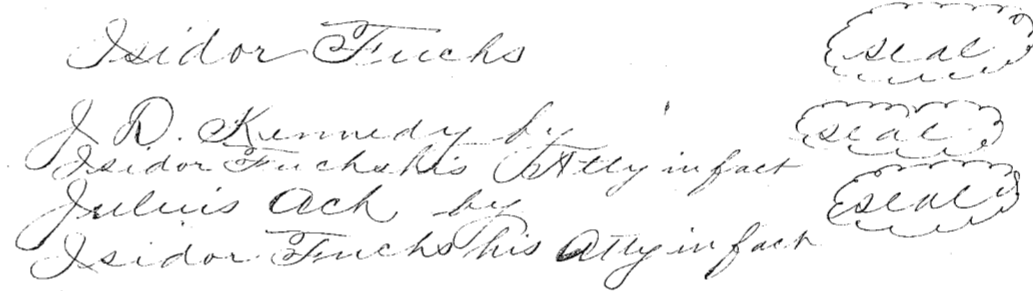 Isidor Fuchs seal
J. D. Kennedy by seal
Isidor Fuchs his Atty in fact
Julius Ach by seal
Isidor Fuchs his Atty in fact